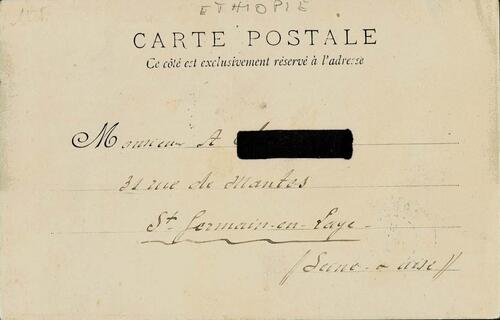 ETHIOPIE
CARTE POSTALE
Ce côté est exclusivement réservé à l'adresse
Monsieur A
31 rue de Mantes
St. Germain-en-Laye-
(Seine-&-Oise)